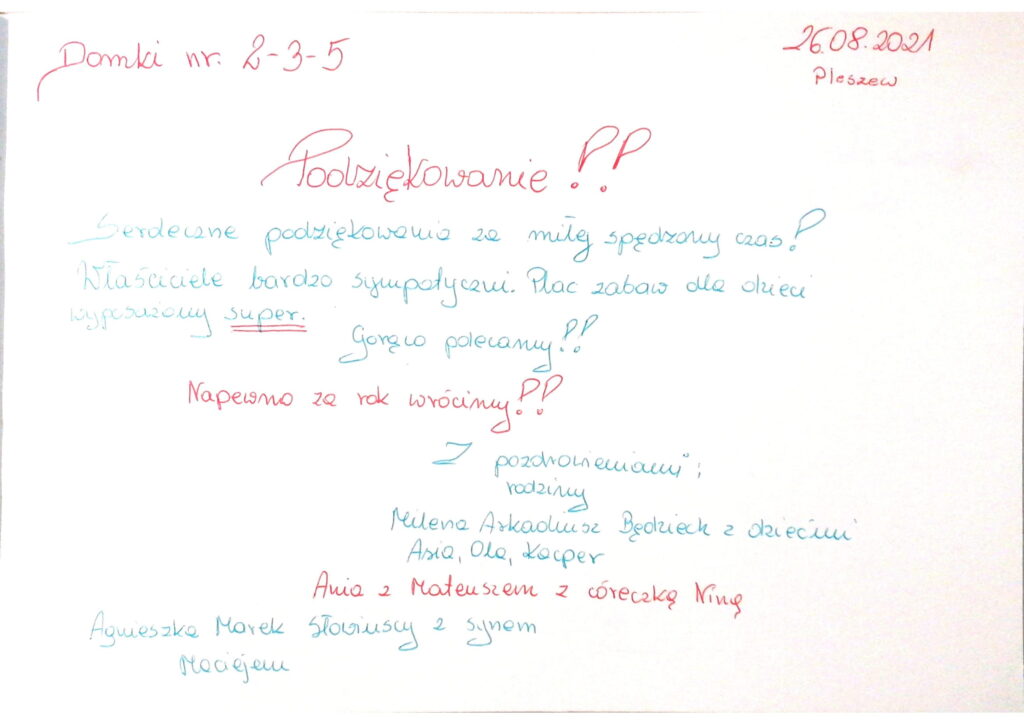 Domki nr. 2-3-5
26.08.2021
Pleszew
Podziękowanie!!
Serdeczne podziękowania za miłej spędzony czas!
Właściciele bardzo sympatyczni. Plac zabaw dla dzieci
wyposażony super.
Gorąco polecamy!!
Napewno za rok wrócimy!!
Z pozdrowieniami;
rodziny
Milena Arkadiusz z dziećmi
Asia, Ola, Kacper
Ania z Mateuszem z córeczką Niną
Agnieszka Marek z synem
Maciejem